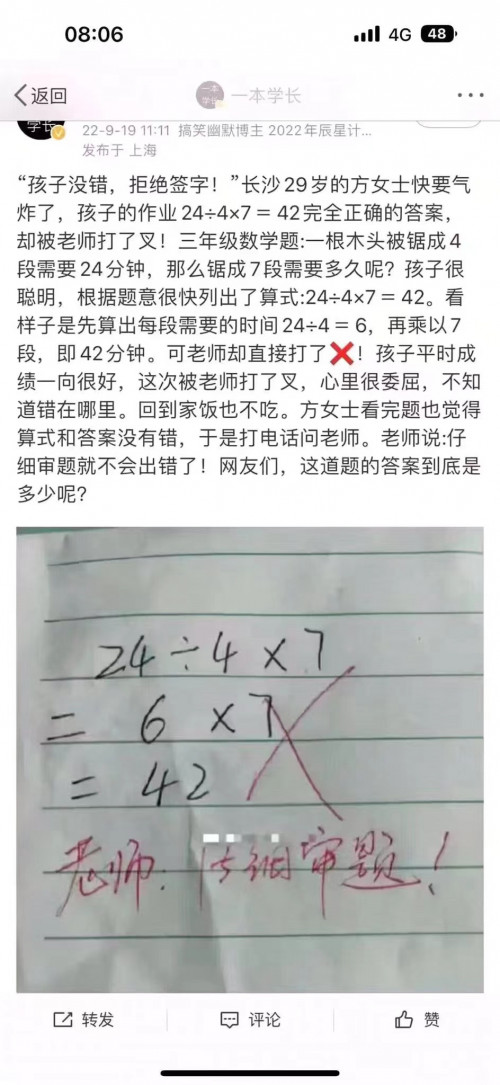 08:06
4G 48
返回
一本学长
学长
22-9-19 11:11 搞笑幽默博主 2022年辰星计...
发布于 上海
“孩子没错，拒绝签字！”长沙29岁的方女士快要气
炸了，孩子的作业24÷4×7 = 42完全正确的答案，
却被老师打了叉！三年级数学题:一根木头被锯成4
段需要24分钟，那么锯成7段需要多久呢？孩子很
聪明，根据题意很快列出了算式:24÷4×7 = 42。看
样子是先算出每段需要的时间24÷4 = 6，再乘以7
段，即42分钟。可老师却直接打了❌！孩子平时成
绩一向很好，这次被老师打了叉，心里很委屈，不知
道错在哪里。回到家饭也不吃。方女士看完题也觉得
算式和答案没有错，于是打电话问老师。老师说:仔
细审题就不会出错了！网友们，这道题的答案到底是
多少呢？
24÷4×7
= 6 ×7
= 42
老师：仔细审题！
转发
评论
赞